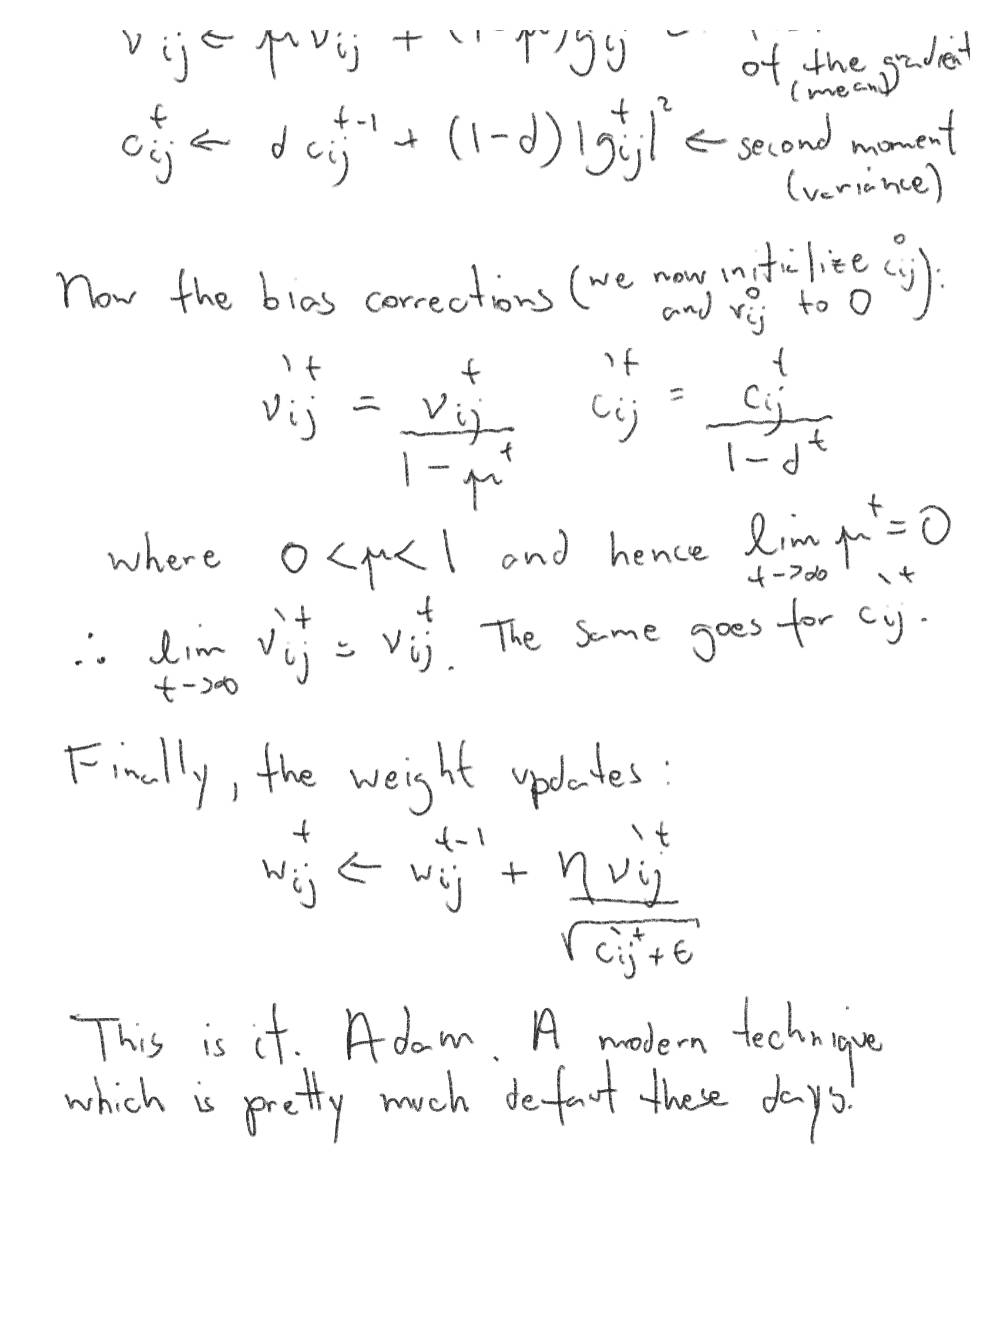 v ij ← μ v ij + (1-μ) g ij of the gradient
(mean)
c ij^t ← d c ij^t-1 + (1-d) |g ij^t|² ← second moment
(variance)
Now the bias corrections (we now initialize c ij^0
and v ij^0 to 0):
v̀ ij^t = v ij^t / 1-μ^t c̀ ij^t = c ij^t / 1-d^t
where 0<μ<1 and hence lim t->∞ μ^t = 0
∴ lim t->∞ v̀ ij^t = v ij^t. The same goes for c̀ ij^t.
Finally, the weight updates:
w ij^t ← w ij^t-1 + η v̀ ij^t / √c̀ ij^t + ϵ
This is it. Adam. A modern technique
which is pretty much defaut these days!